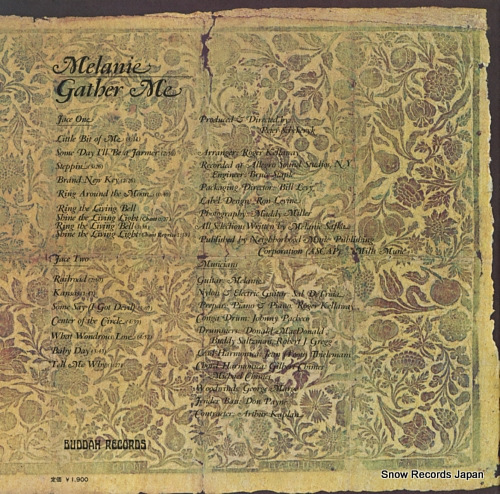 Melanie
Gather Me
Face One
Little Bit of Me
Some Day I'll Be a Farmer
Steppin'
Brand New Key
Ring Around the Moon
Ring the Living Bell
Shine the Living Light
Ring the Living Bell
Shine the Living Light
Face Two
Railroad
Kansas
Some Say (I Got Devil)
Center of the Circle
What Wondrous Love
Baby Day
Tell Me Why
BUDDAH RECORDS
定価 ¥1,900
Produced & Directed by
Peter Schekeryk
Arranger: Roger Kellaway
Recorded at Allegro Sound Studios, N.Y.
Engineer: Bruce Staple
Packaging Director: Bill Levy
Label Design: Ron Levine
Photography: Maddy Miller
All Selections Written by Melanie Safka
Published by Neighborhood Music Publishing
Corporation (ASCAP)
Musicians
Guitar: Melanie
Nylon & Electric Guitar: Sal DeTroia
Prepar. Piano & Piano: Roger Kellaway
Conga Drum: Johnny Pacheco
Drummers: Donald MacDonald
Buddy Saltzman, Robert J. Gregg
Cord Harmonica:
Chord Harmonica: Gilbert
Michael
Woodwinds: George Marge
Fender Bass: Don Payne
Contractor: Arthur Kaplan
Snow Records Japan